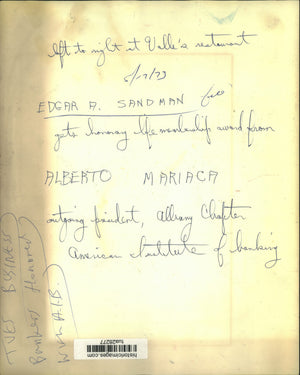 left to right at Valle's restaurant
EDGAR A. SANDMAN
gets honorary life membership award from
ALBERTO MARIACA
outgoing president, Albany Chapter
American Institute of banking
TUES BUSINESS
Bankers Honored
With A.I.B.
historicimages.com
tua28277